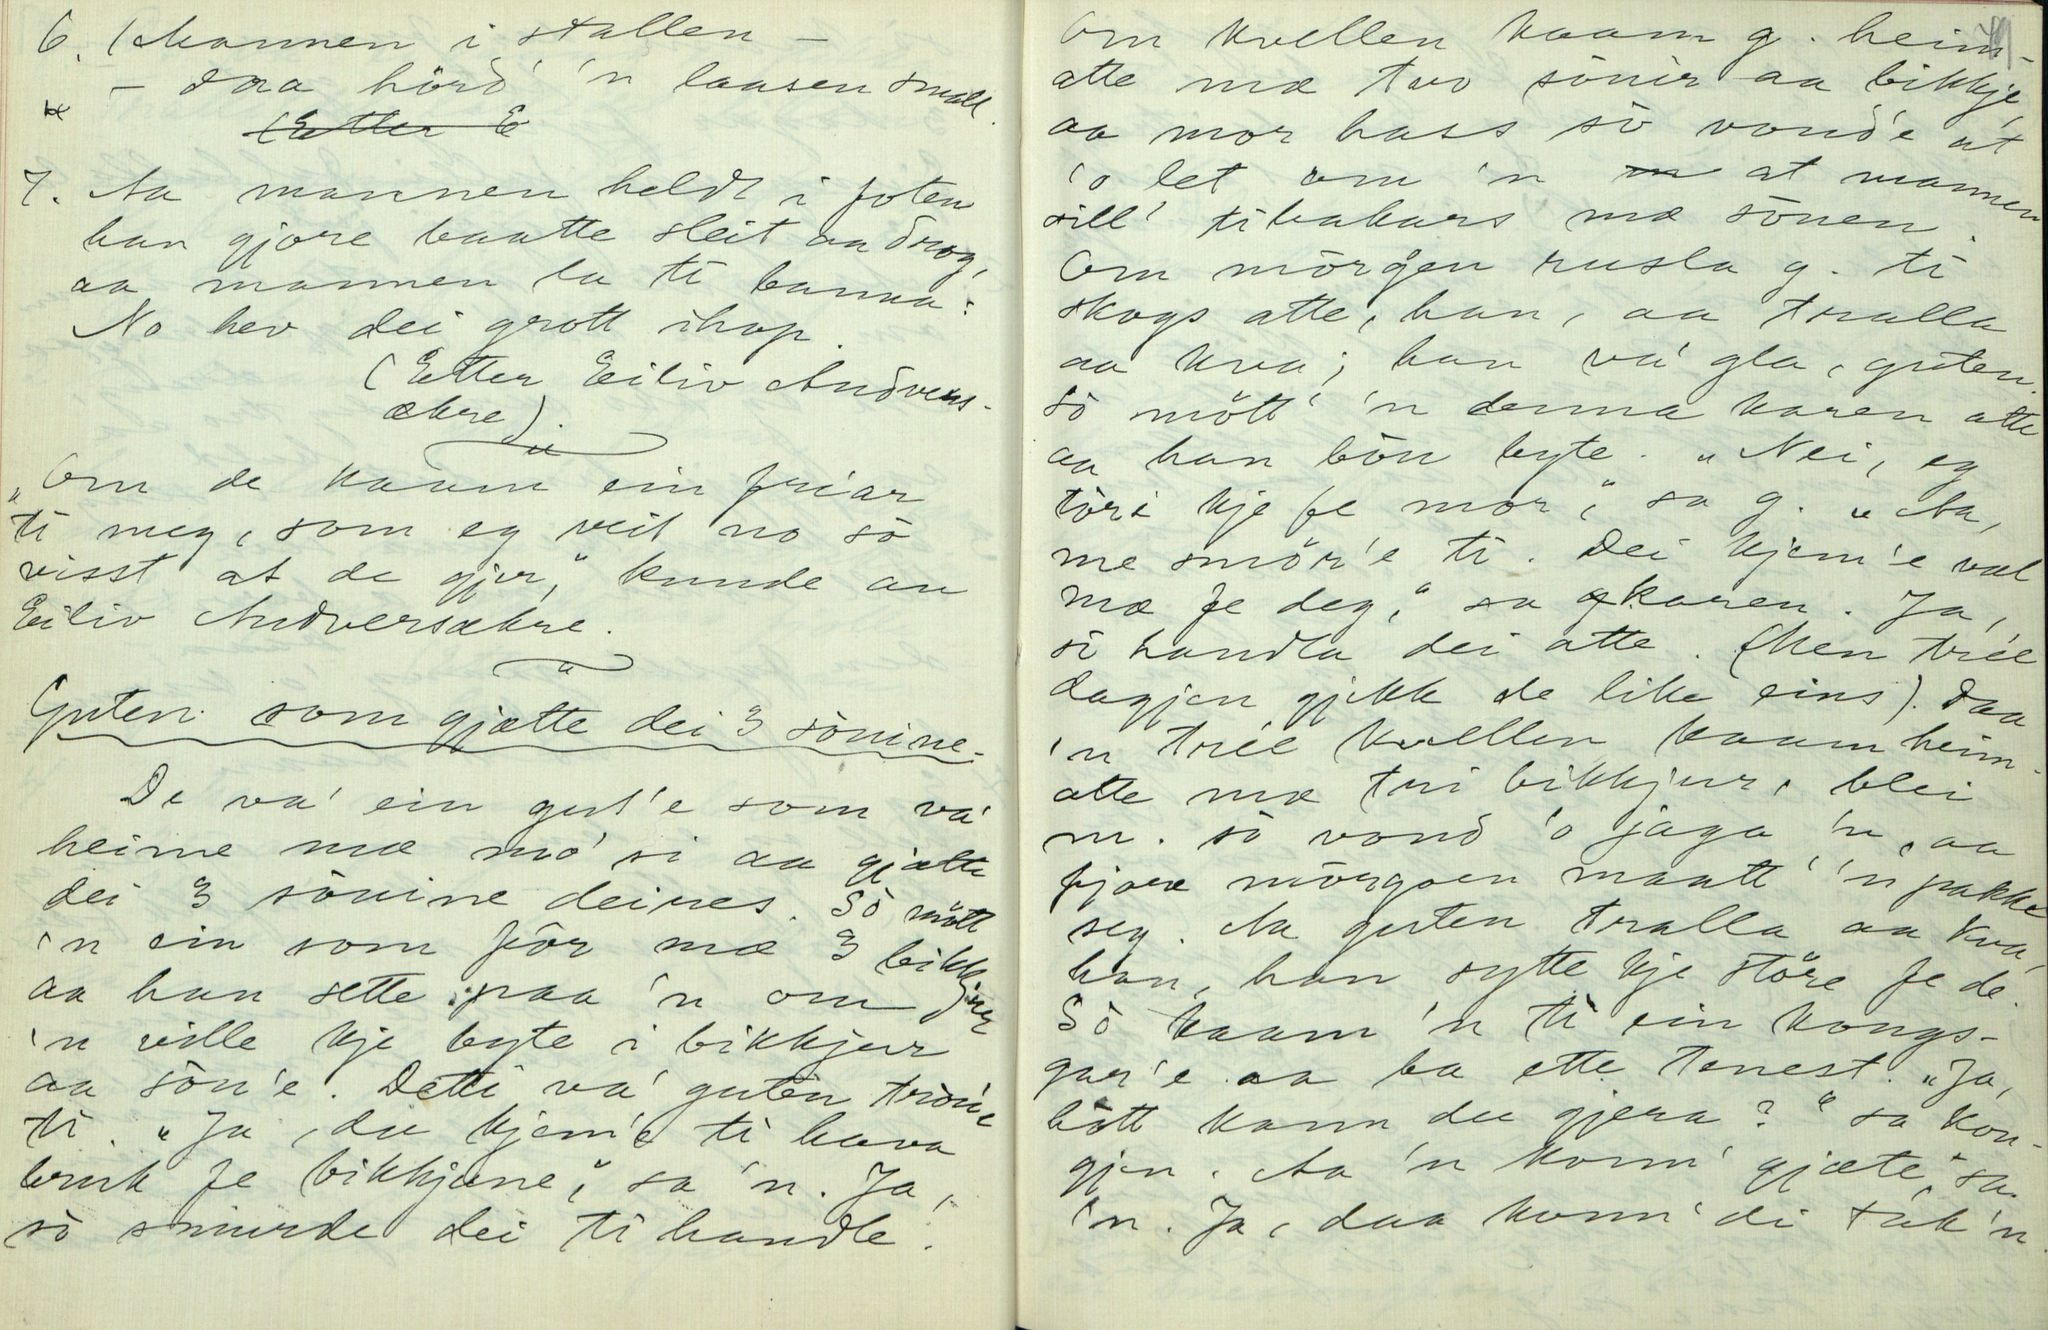 6. Mannen i stallen –
– daa hörd' 'n laasen small.
(Etter E
7. Aa mannen heldt i foten
han gjore baatte sleit aa drog,
aa mannen la ti banna:
No hev dei grott ihop.
(Etter Eiliv Andvers-
ækre).
"Om de kaam ein friar
ti meg, som eg veit no so
visst at de gjer," kunde an
Eiliv Andversækre.
Guten som gjætte dei 3 sönine.
De va' ein gut'e som va'
heime mæ mo' si aa gjætte
dei 3 sönine deires. Sö mött
'n ein som för mæ 3 bikkjur
aa han sette paa 'n om
'n ville kje byte i bikkjur
aa sön'e. Detti va' guten tröu'e
ti. "Ja, du kjem'e ti hava
bruk fe bikkjune," sa 'n. Ja,
sö smurde dei ti handle.
49
Om kvellen kaam g. heim-
atte mæ two sönir aa bikkje,
aa mor hass sö vond'e at
'o let om 'n at mannen
sill' tibakars mæ sönen.
Om mörgon rusla g. ti
skogs atte, han, aa tralla
aa kva; han va' gla, guten.
Sö mött' 'n denna karen atte
aa han bön byte. "Nei, eg
töre kje fe mor," sa g. "Aa,
me smör'e ti. Dei kjem'e væl
mæ fe deg," sa karen. Ja,
sö handla dei atte. (Men trée
dagjen gjekk de like eins). Daa
'n trée kvellen kaam heim-
atte mæ tri bikkjur, blei
m. sö vond 'o jaga 'n, aa
fjore mörgoen maatt' 'n pakke
seg. Aa guten tralla aa kva,
han, han sytte kje störe fe de.
Sö kaam 'n ti ein kongs-
gar'e aa ba ette tenest. "Ja,
hött kann du gjera?" sa kon-
gjen. Aa 'n konn' gjæte, sa
'n. Ja, daa konn' di tak'n.